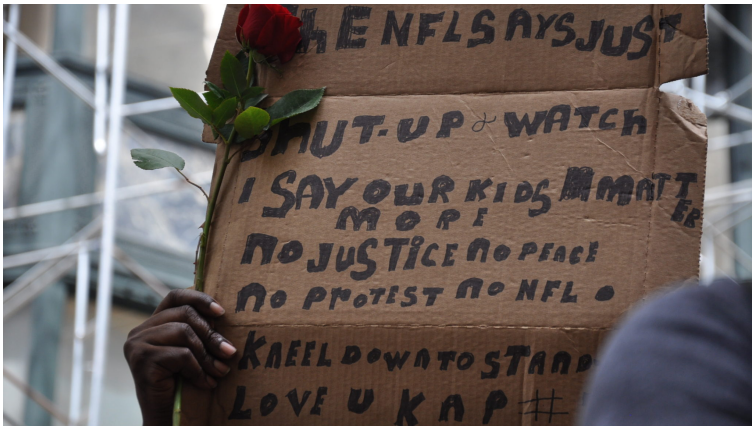 THE NFL SAYS JUST
SHUT-UP & WATCH
I SAY OUR KIDS MATTER
MORE
NO JUSTICE NO PEACE
NO PROTEST NO NFL.
KNEEL DOWN TO STAND
LOVE U KAP #